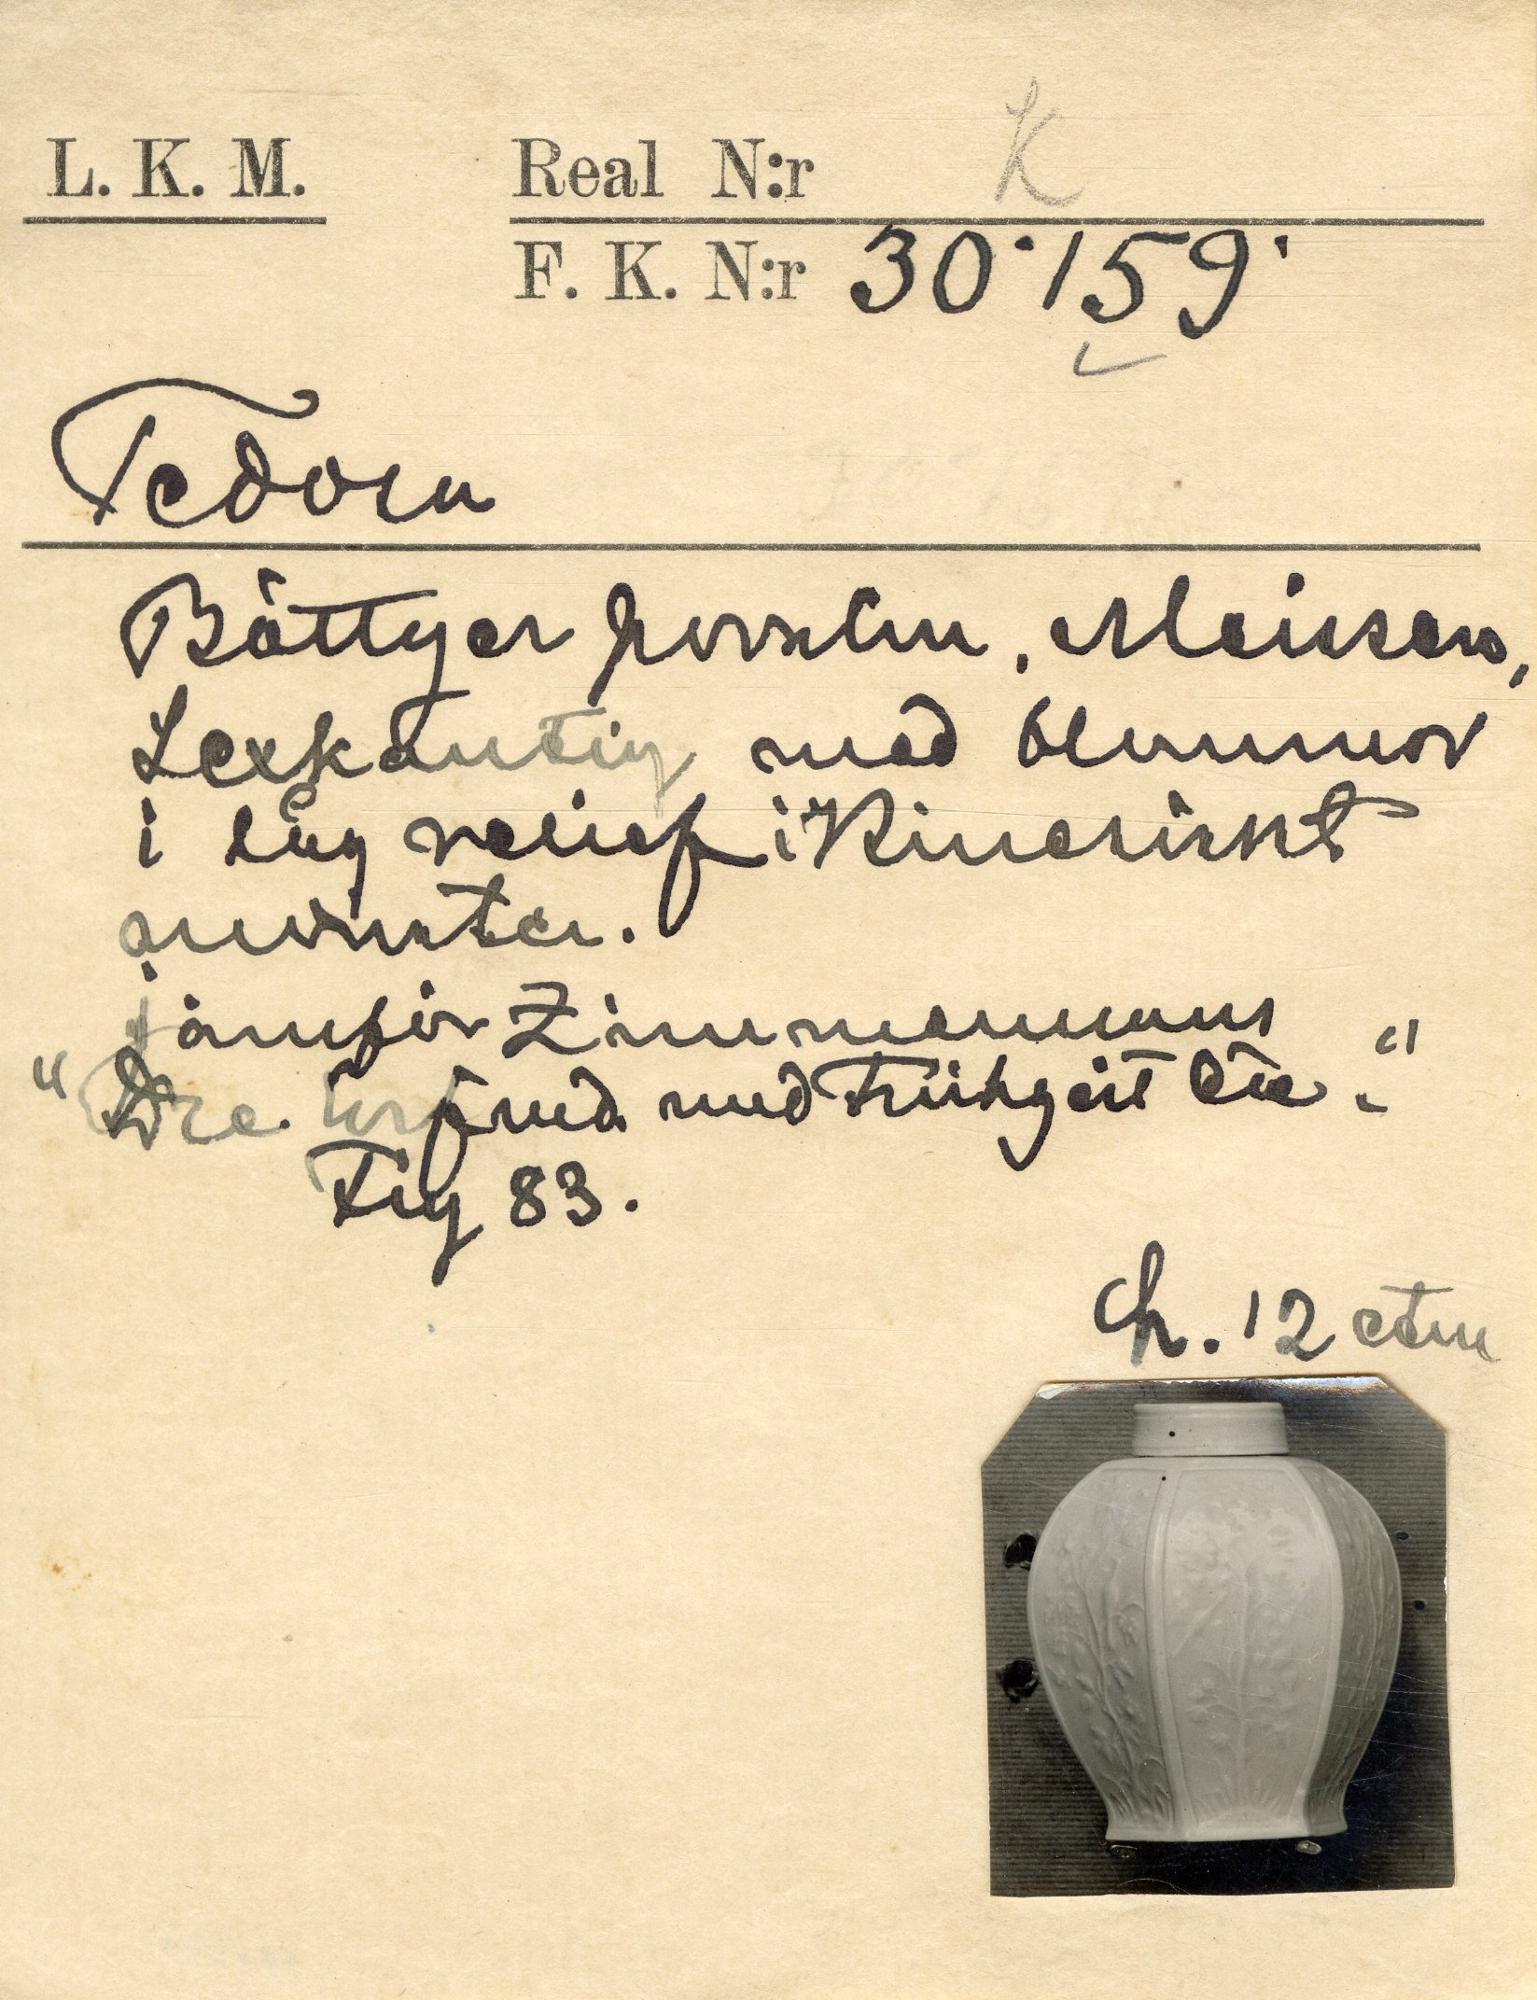 L. K. M. Real N:r K
F. K. N:r 30·159·
Tedosa
Böttger porslin, Meissen,
Sexkantig med blommor
i låg relief i Kinesiskt
mönster.
jämför Zimmermanns
"Die Erfind und Frühzeit etc."
Fig 83.
h. 12 ctm